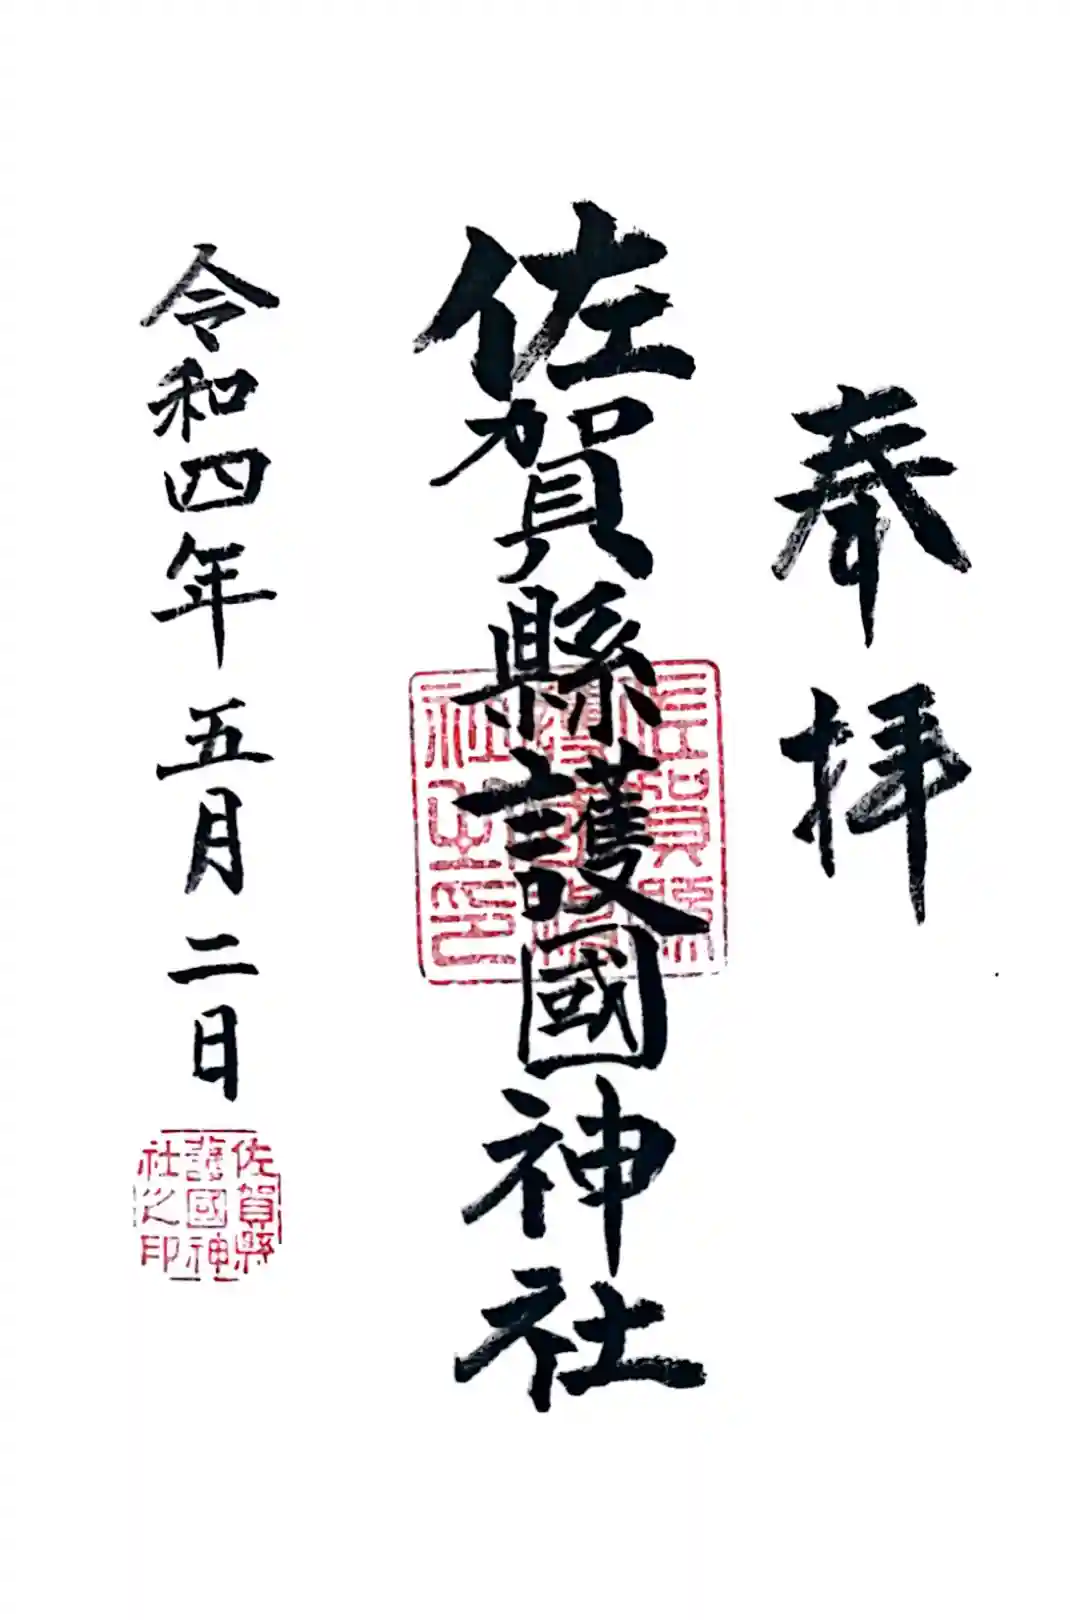 奉拝
佐賀縣護國神社
佐賀縣護國神社之印
令和四年五月二日
佐賀縣
護國神
社之印